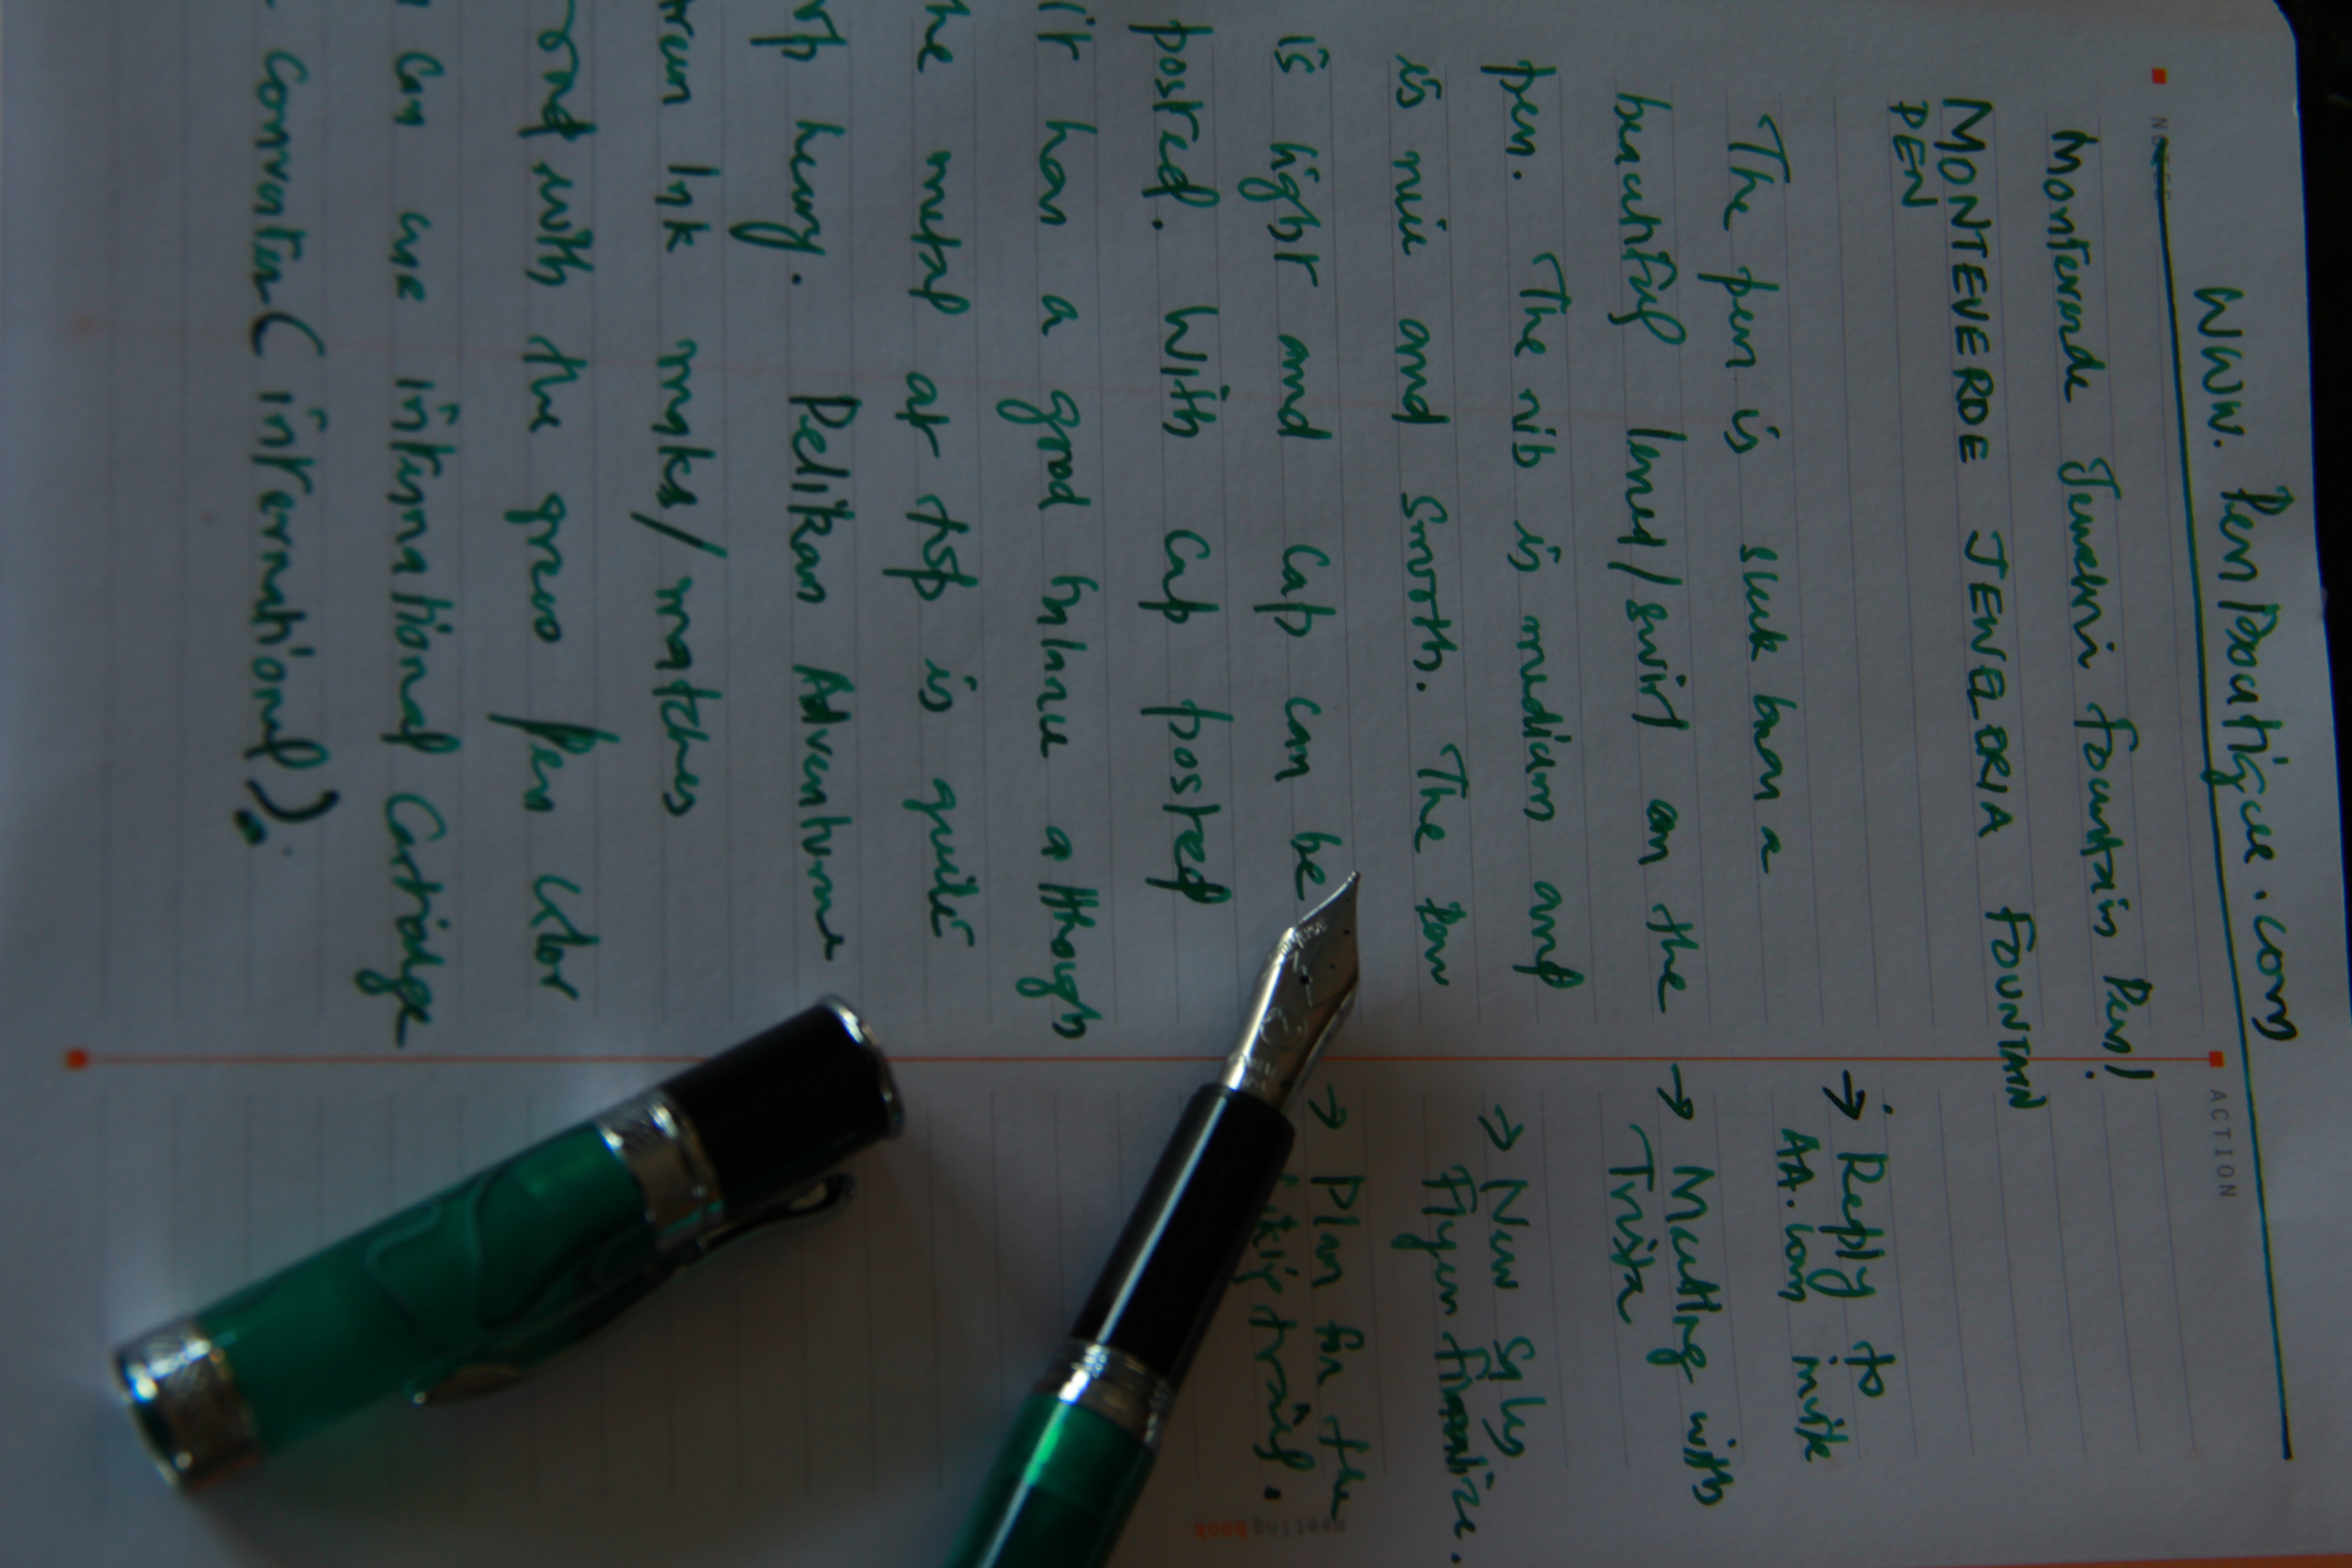 www.PenBoutique.com
NOTES
ACTION
Monteverde Jewelria Fountain Pen!
MONTEVERDE JEWELRIA FOUNTAIN
PEN
The pen is sleek has a
beautiful lined/swirl on the
pen. The nib is medium and
is nice and smooth. The pen
is light and cap can be
posted. With cap posted
it has a good balance although
the metal at top is quite
top heavy. Pelikan Adventurine
Green Ink makes/matches
good with the green pen color
can use international Cartridge
converter (international).
→ Reply to
AA.com invite
→ Meeting with
Trista
→ New Sales
Flyer finalize.
→ Plan for the
trail.
meetingbook